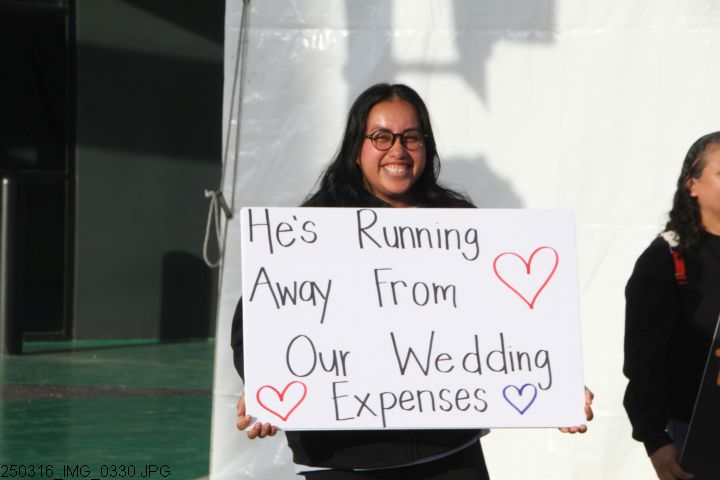 He's Running
Away From
Our Wedding
Expenses
250316_IMG_0330.JPG